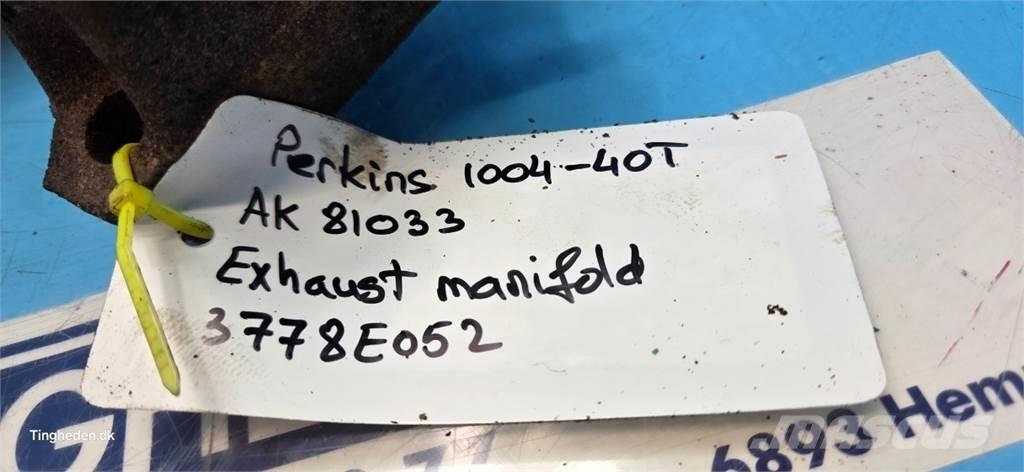 Perkins 1004-40T
AK 81033
Exhaust manifold
3778E052
Tingheden.dk
6893 Hem
Mascus